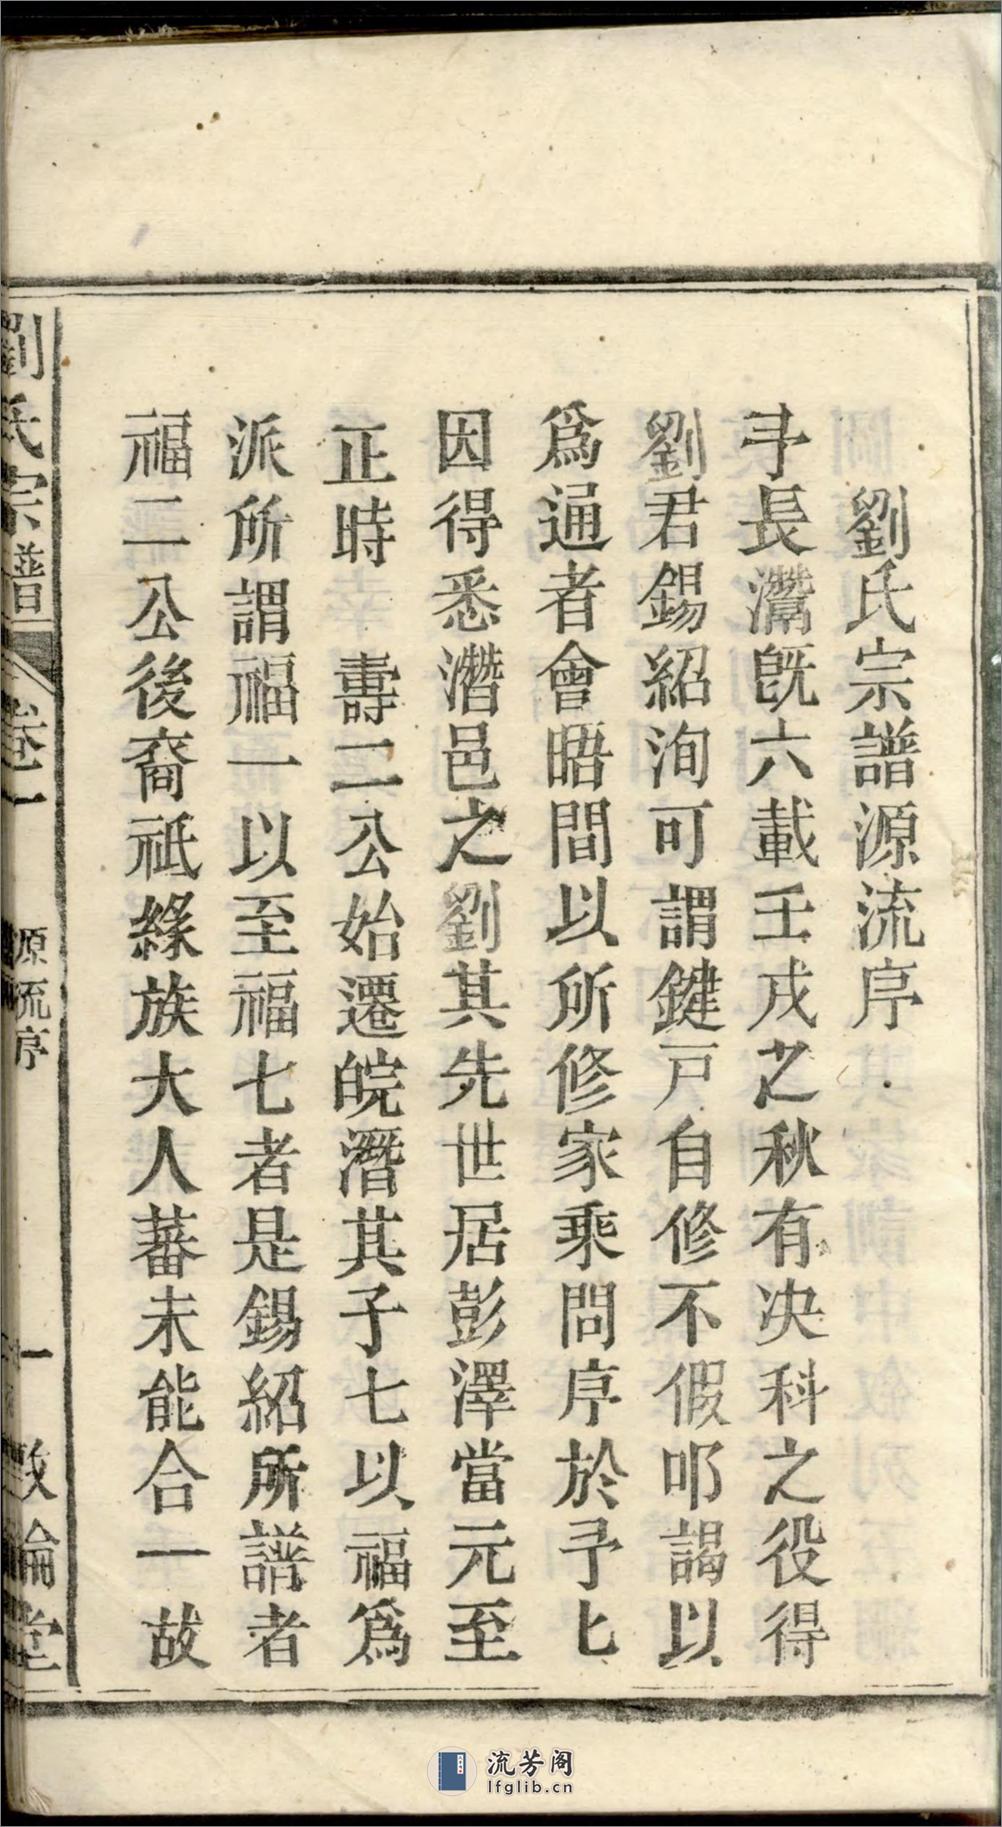 劉氏宗譜源流序
予長灊旣六載壬戌之秋有決科之役得
劉君錫紹洵可謂鍵戸自修不假叩謁以
爲通者會晤間以所修家乘問序於予匕
因得悉潛邑之劉其先世居彭澤當元至
正時 壽二公始遷皖潛其子七以福爲
派所謂福一以至福七者是錫紹所譜者
福二公後裔祗緣族大人蕃未能合一故
劉氏宗譜
卷一
源流序
一
敦倫堂
流芳阁
lfglib.cn